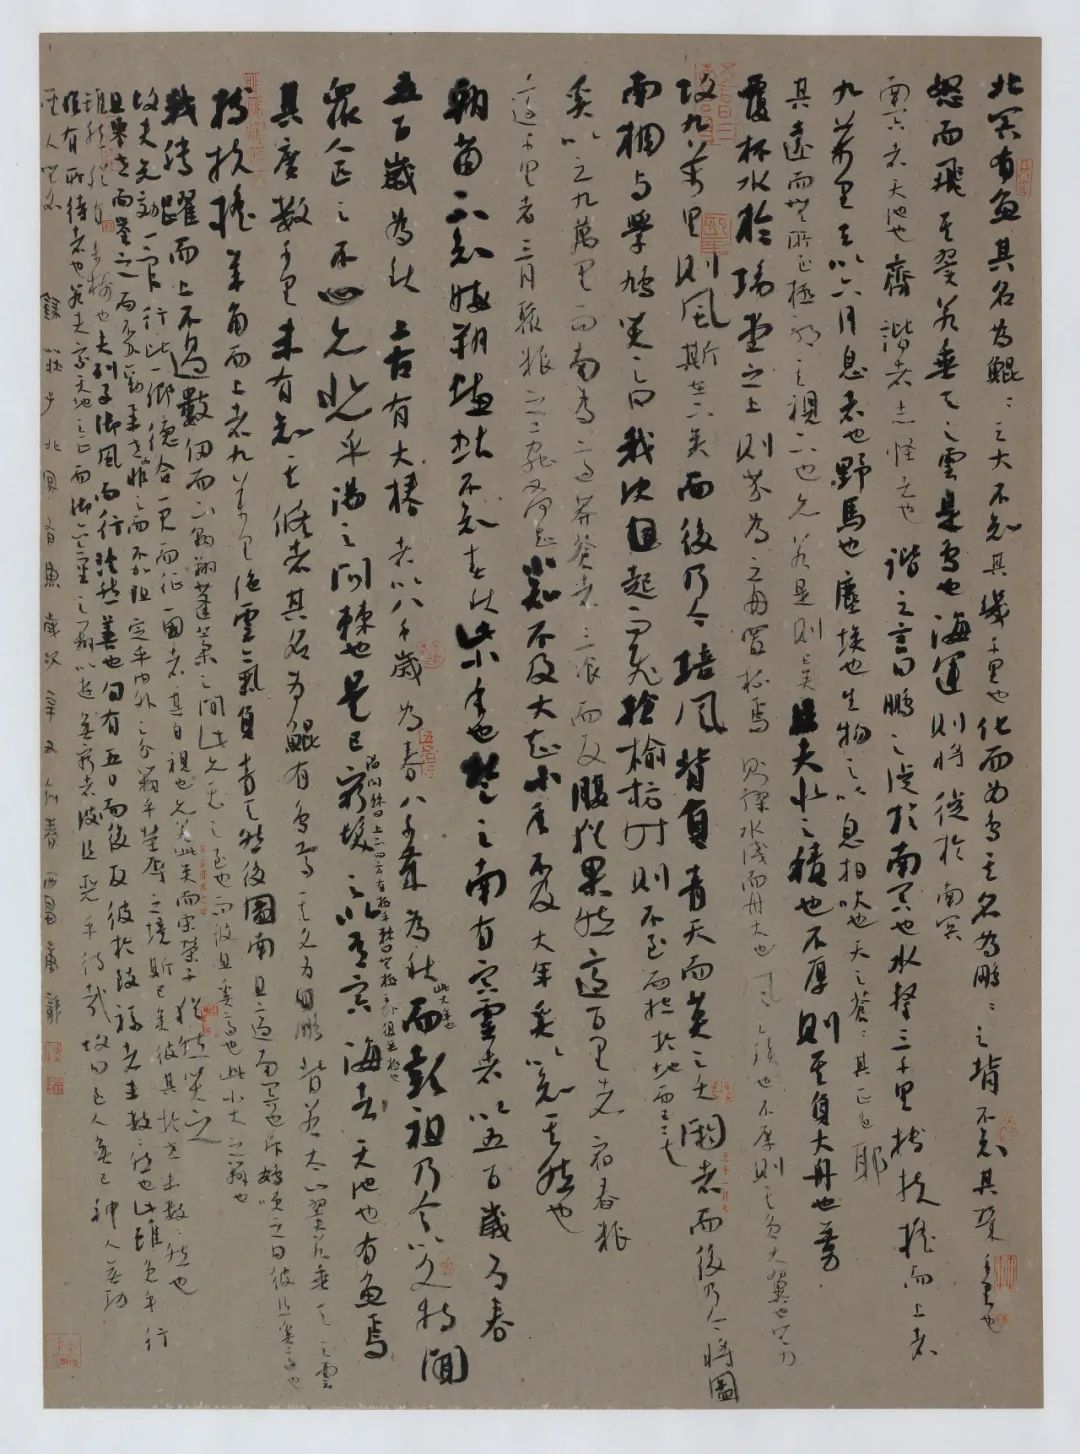 北冥有魚其名為鯤鯤之大不知其幾千里也化而為鳥其名為鵬鵬之背不知其幾千里也
怒而飛其翼若垂天之雲是鳥也海運則將徙於南冥
南冥者天池也齊諧者志怪者也諧之言曰鵬之徙於南冥也水擊三千里摶扶搖而上者
九萬里去以六月息者也野馬也塵埃也生物之以息相吹也天之蒼蒼其正色耶
其遠而無所至極耶其視下也亦若是則已矣且夫水之積也不厚則其負大舟也無力
覆杯水於坳堂之上則芥為之舟置杯焉則膠水淺而舟大也風之積也不厚則其負大翼也無力
故九萬里則風斯在下矣而後乃今培風背負青天而莫之夭閼者而後乃今將圖
南蜩與學鳩笑之曰我決起而飛搶榆枋時則不至而控於地而已矣
奚以之九萬里而南為適莽蒼者三飡而反腹猶果然適百里者宿舂糧
適千里者三月聚糧之二蟲又何知小知不及大知小年不及大年奚以知其然也
朝菌不知晦朔蟪蛄不知春秋此小年也楚之南有冥靈者以五百歲為春
五百歲為秋上古有大椿者以八千歲為春八千歲為秋此大年也而彭祖乃今以久特聞
眾人匹之不亦悲乎湯之問棘也是已窮髮之北有冥海者天池也有魚焉
其廣數千里未有知其修者其名為鯤有鳥焉其名為鵬背若太山翼若垂天之雲
摶扶搖羊角而上者九萬里絕雲氣負青天然後圖南且適南冥也斥鴳笑之曰彼且奚適也
我騰躍而上不過數仞而下翱翔蓬蒿之間此亦飛之至也而彼且奚適也此小大之辯也
故夫知效一官行比一鄉德合一君而征一國者其自視也亦若此矣而宋榮子猶然笑之
且舉世而譽之而不加勸舉世非之而不加沮定乎內外之分辯乎榮辱之境斯已矣彼其於世未數數然也
雖然猶有未樹也夫列子御風而行泠然善也旬有五日而後反彼於致福者未數數然也此雖免乎行
猶有所待者也若夫乘天地之正而御六氣之辯以遊無窮者彼且惡乎待哉故曰至人無己神人無功
聖人無名 錄莊子北冥有魚